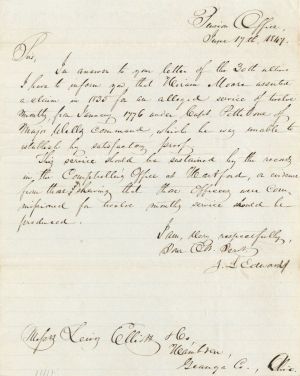 Pension Office,
June 17th, 1847.
Sirs,
In answer to your letter of the 20th ultimo
I have to inform you that Hiram Moore asserted
a claim in 1835 for an alleged service of twelve
months, from January 1776 under Capt Pettibone of
Major command, which he was unable to
establish by satisfactory proof.
This service should be sustained by the records
in the Comptrollers Office at Hartford, or evidence
from those showing that those Officers were com-
missioned for twelve months service should be
produced.
I am, Very respectfully,
Your Ob. Servt.
J. L. Edwards
Messrs Levi, Elliott & Co.
Geauga Co., Ohio.